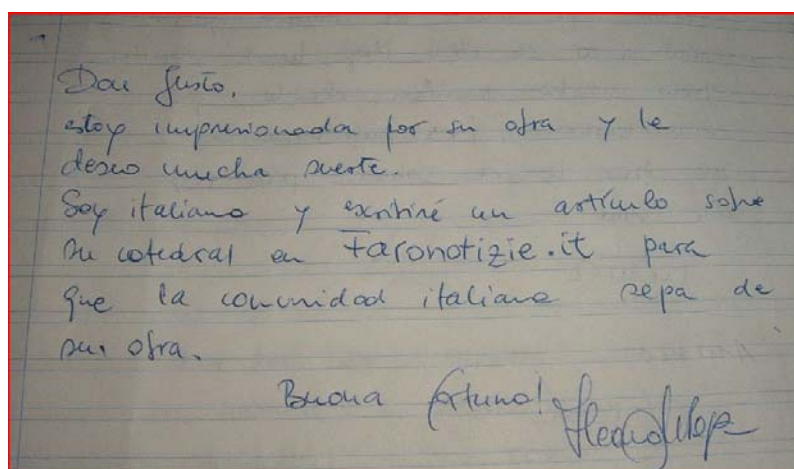 Don Justo,
estoy impresionada por su obra y le
deseo mucha suerte.
Soy italiana y escribiré un artículo sobre
su catedral en Faronotizie.it para
que la comunidad italiana sepa de
su obra.
Buona fortuna!